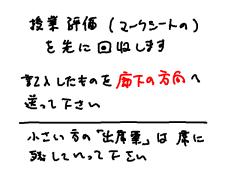 授業評価(マークシートの)
を先に回収します
記入したものを廊下の方向へ
送って下さい
小さい方の「出席票」は席に
残していって下さい